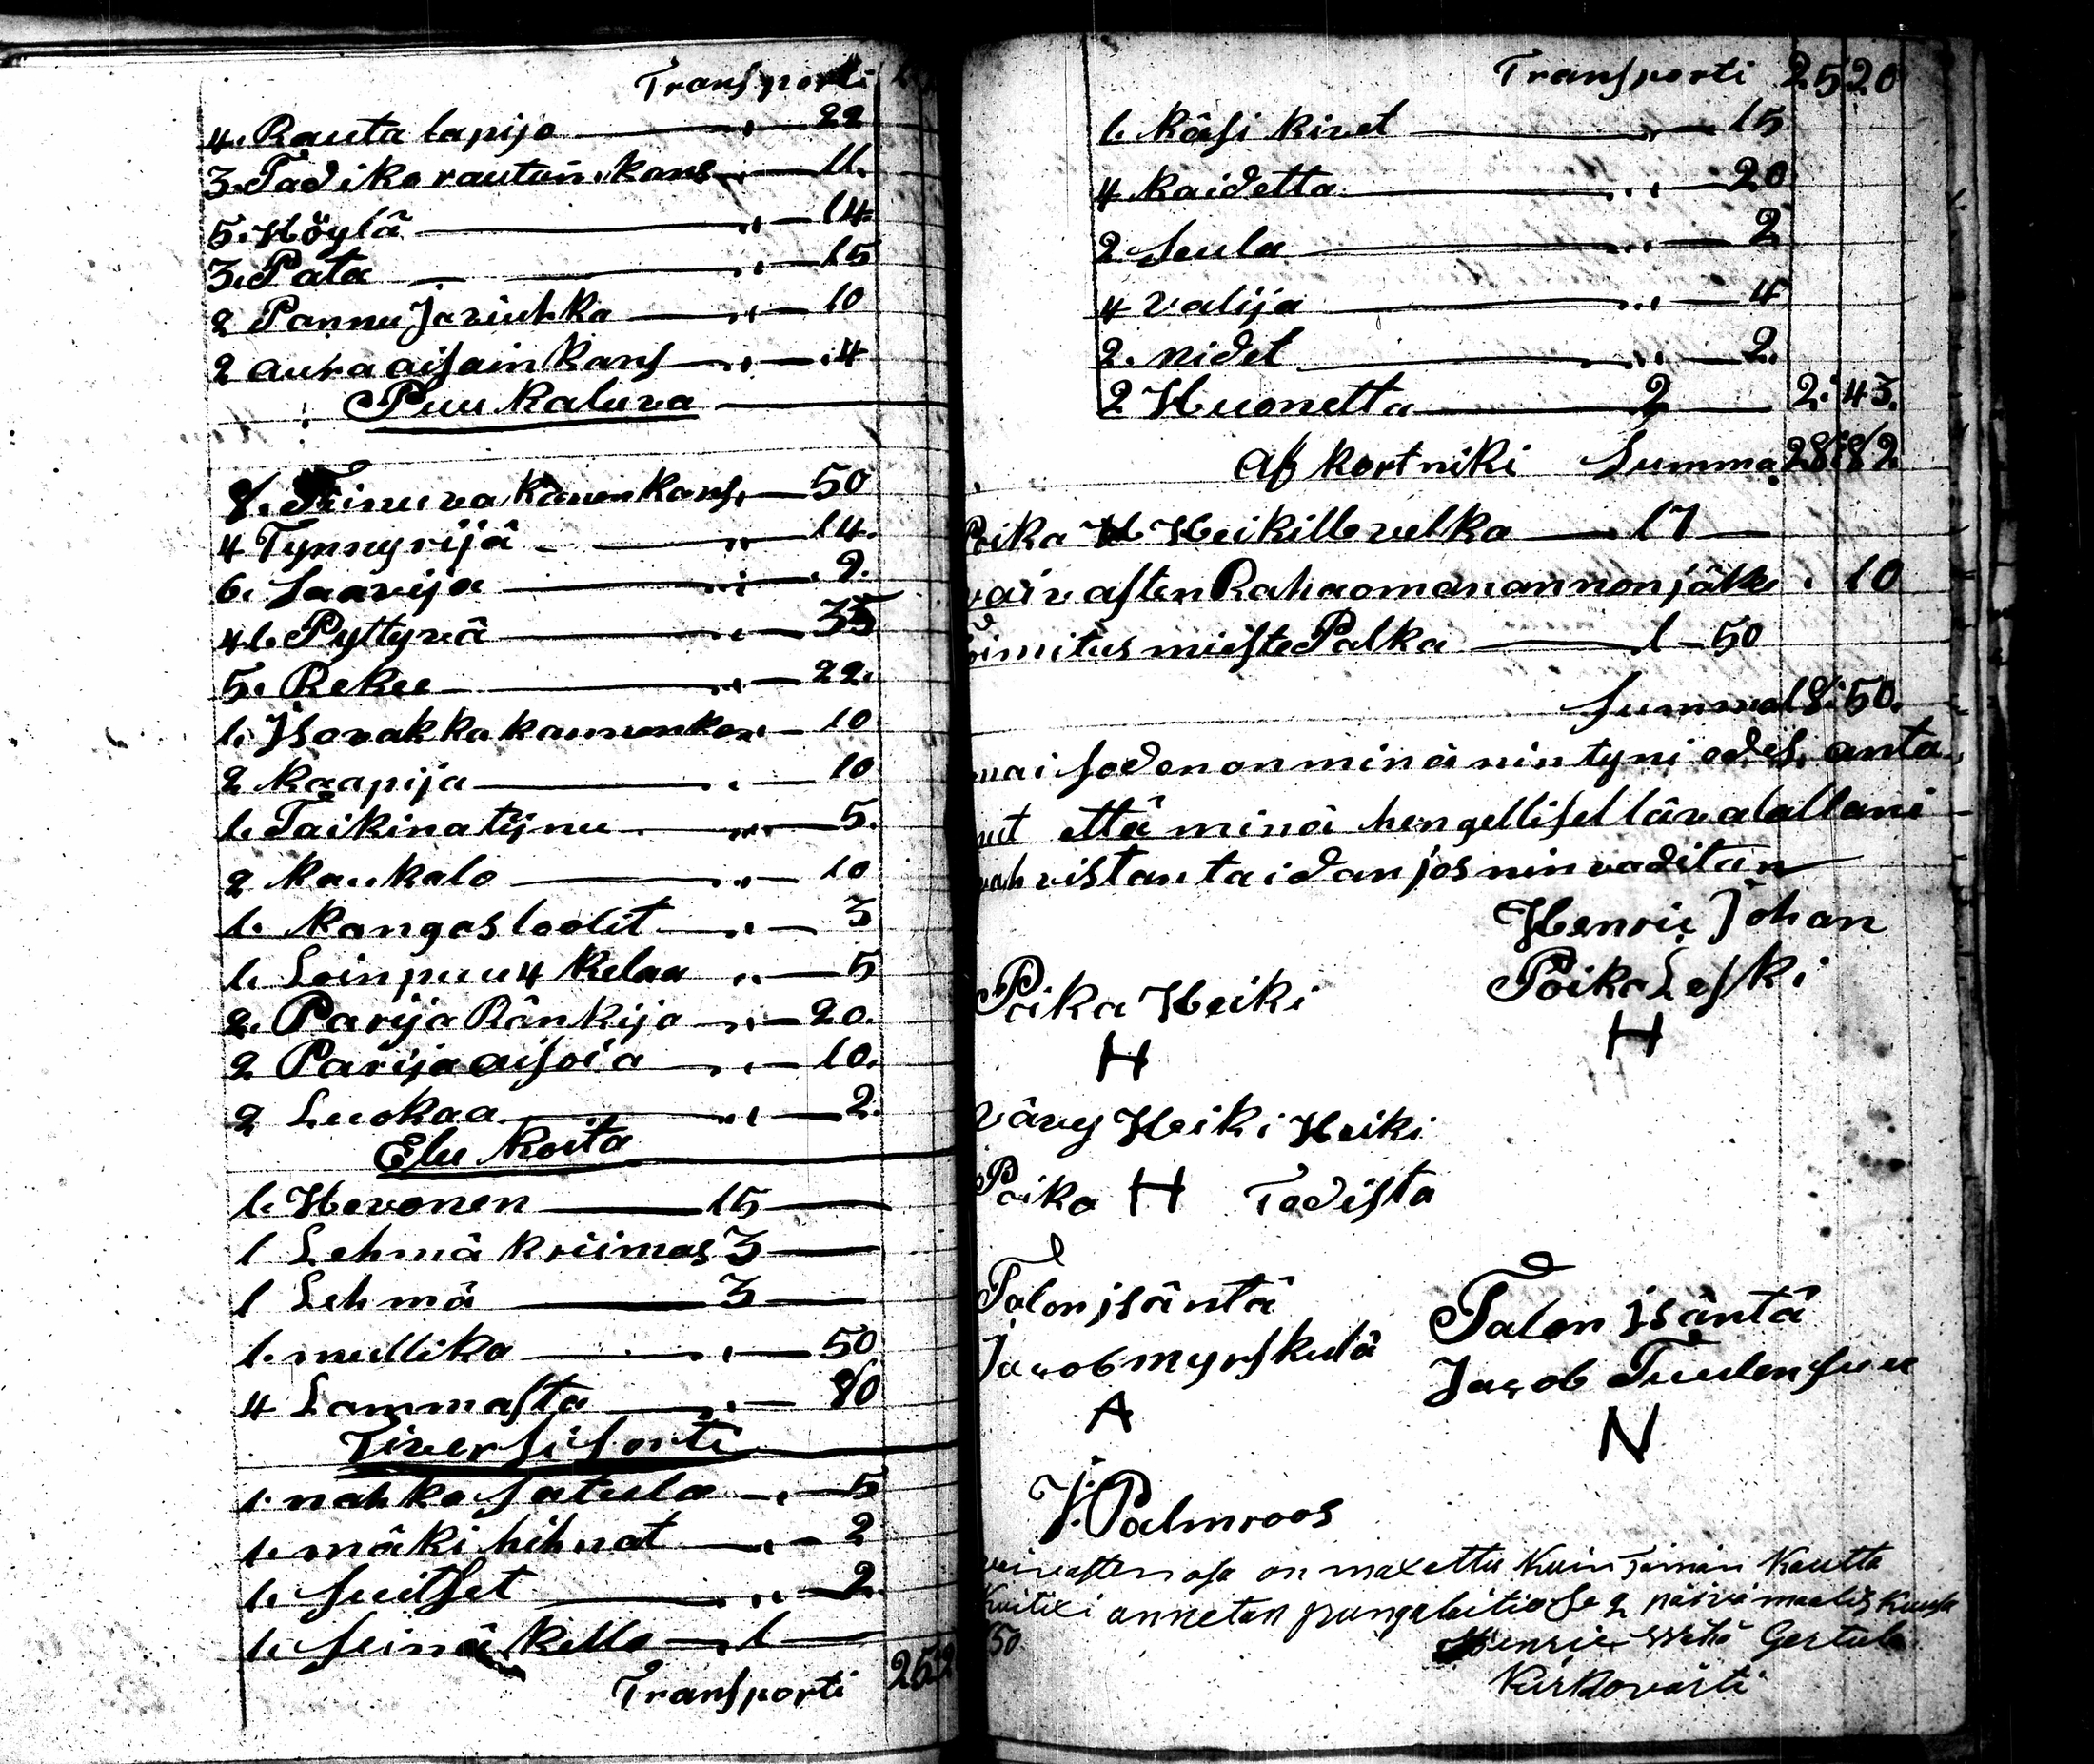 Transporti
4. Rauta lapijo — „ — 22
3. Tadiko rautain kans — „ — 11.
5. Höylä — „ — 14.
3. Pata — „ — 15
2 Pannu Ja riuhka — „ — 10
2 aura aisain kans — „ — 4
Puu Kaluva
8. Tinuva kanen kans, — 50
4 Tynnyrijä — „ — 14.
6. Saavija — „ — 9.
41. Pyttyvä — „ — 35
5. Rekee — „ — 22.
1. Iso vakka kannenkans — 10
2 kaapija — „ — 10
1. Taikina tijnu — „ — 5.
2 Kaukalo — „ — 10
1. Kangas loolit — „ — 3
1. Loinpuu 4 Kelaa „ — 5
2. Parija Ränkijo — „ — 20.
2 Parija aisoia — „ — 10.
2 Luokaa — „ — 2.
Elu Koita
1. Hevonen — 15 —
1 Lehmä kriimas 3 —
1 Lehmä — 3 —
1. mullika — „ — 50
4 Lammasta — „ — 80
Tiversi sorti
1. nahka satula — „ — 5
1. mäki hihnat — „ — 2
1. suitset — „ — 2
1. seinä kello — „ 1 —
Transporti 252
Transporti 25 20
1. käsi kivet — „ — 15
4 kaidetta — „ — 20
2 seula — „ — 2
4 valija — „ — 4
2. nidet — „ — 2.
2 Huonetta — 2 — 2. 43.
Af kortniki Summa 28: 82
Poika H Heikille velka — 17 —
vaivasten Raha oman annon jälke . 10
Toimitus mieste Palka — 1 — 50
Summa 18: 50.
mai soden on minä nin tyni edes, anta
nut että minä hengellisellä valallani
vahvistan taidan jos nin vaditan
Henric Johan
Poika Leski
H
Poika Heiki
H
Vävy Heiki Heiki
Poika H Todista
Talon isäntä
Jacob Myrskulä
A
Talon isäntä
Jacob Tuulensuu
N
J. Palmroos
vaivasten osa on maxettu kuin Tämän Kautta
Kuitixi annetan pungalaitiosa 2 päivä maalis kuusa
50. Henric Gertula
Kirkovärti